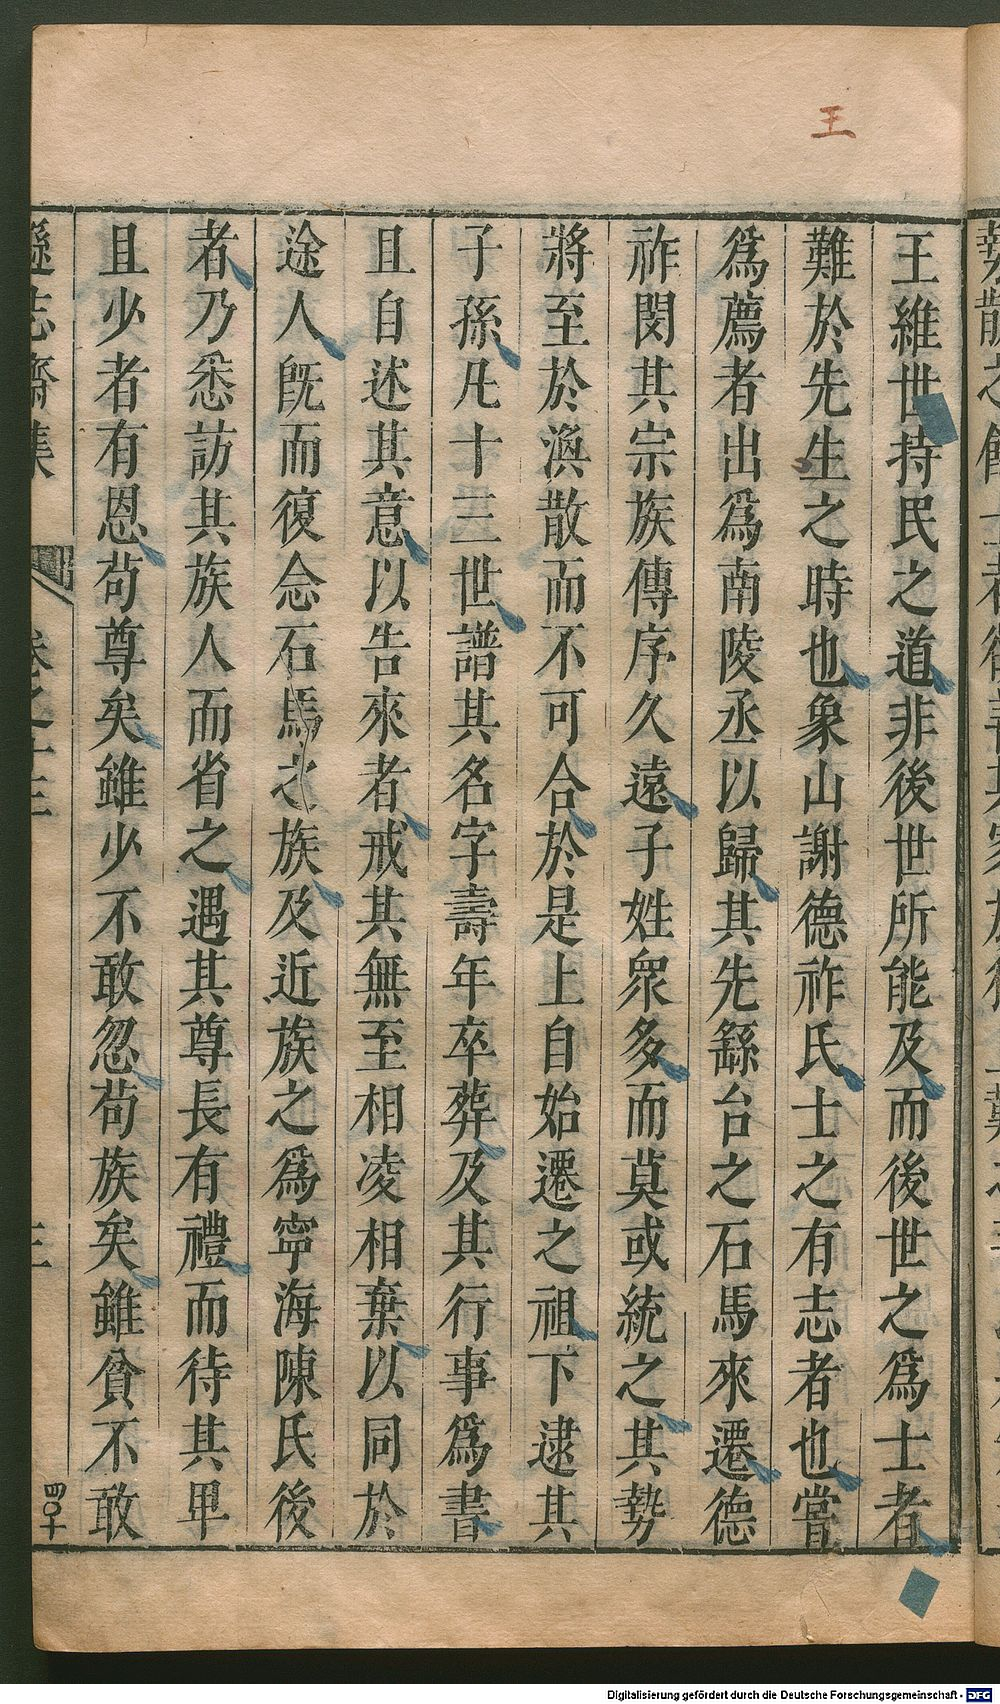 王
王維世持民之道非後世所能及而後世之爲士者
難於先生之時也象山謝德祚氏士之有志者也嘗
爲薦者出爲南陵丞以歸其先繇台之石馬來遷德
祚閔其宗族傳序久遠子姓衆多而莫或統之其勢
將至於渙散而不可合於是上自始遷之祖下逮其
子孫凡十三世譜其名字壽年卒葬及其行事爲書
且自述其意以告來者戒其無至相凌相棄以同於
途人旣而復念石馬之族及近族之爲寧海陳氏後
者乃悉訪其族人而省之遇其尊長有禮而待其卑
且少者有恩苟尊矣雖少不敢忽苟族矣雖貧不敢
遜志齋集 卷之十三 三
四〇十
Digitalisierung gefördert durch die Deutsche Forschungsgemeinschaft - DFG